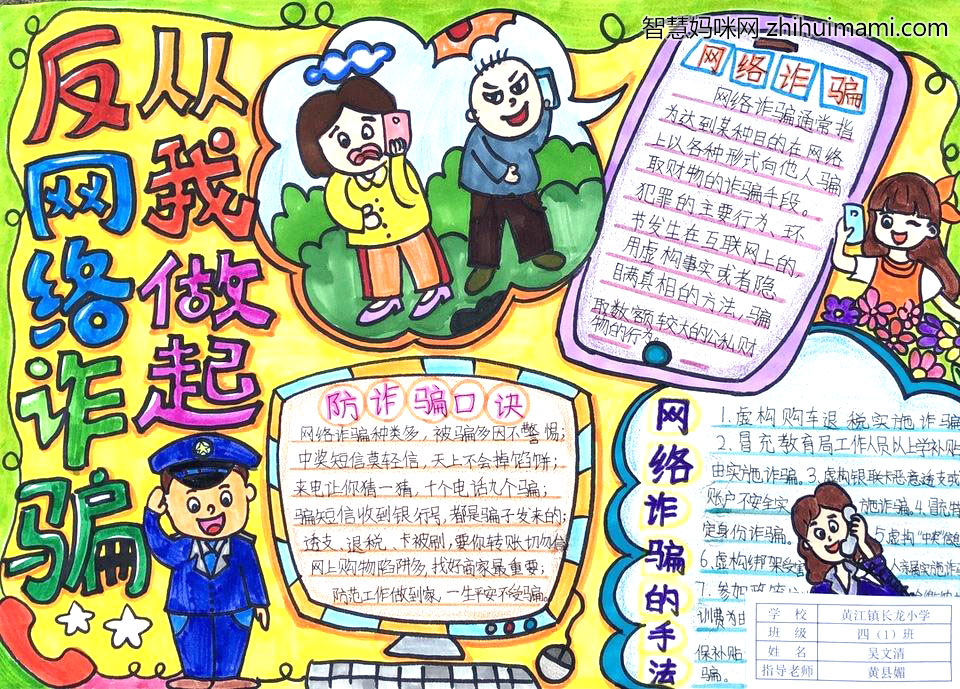 智慧妈咪网 zhihuimami.com
反网络诈骗
从我做起
网络诈骗
网络诈骗通常指
为达到某种目的在网络
上以各种形式向他人骗
取财物的诈骗手段。
犯罪的主要行为、环
节发生在互联网上的，
用虚构事实或者隐
瞒真相的方法，骗
取数额较大的公私财
物的行为。
防诈骗口诀
网络诈骗种类多，被骗多因不警惕；
中奖短信莫轻信，天上不会掉馅饼；
来电让你猜一猜，十个电话九个骗；
骗短信收到银行号，都是骗子发来的；
透支、退税、卡被刷，要你转账切勿信
网上购物陷阱多，找好商家最重要；
防范工作做到家，一生平安不受骗。
网络诈骗的手法
1.虚构购车退税实施诈骗
2.冒充教育局工作人员以上学补贴
由实施诈骗。3.虚构银联卡恶意透支或
账户不安全实 施诈骗。4.冒充特
定身份诈骗。 5虚构“中奖”信息
6.虚构绑架受害 人亲属实施诈
7.参加
训费为由
保补贴
骗。
学校 黄江镇长龙小学
班级 四（1）班
姓名 吴文清
指导老师 黄县媚